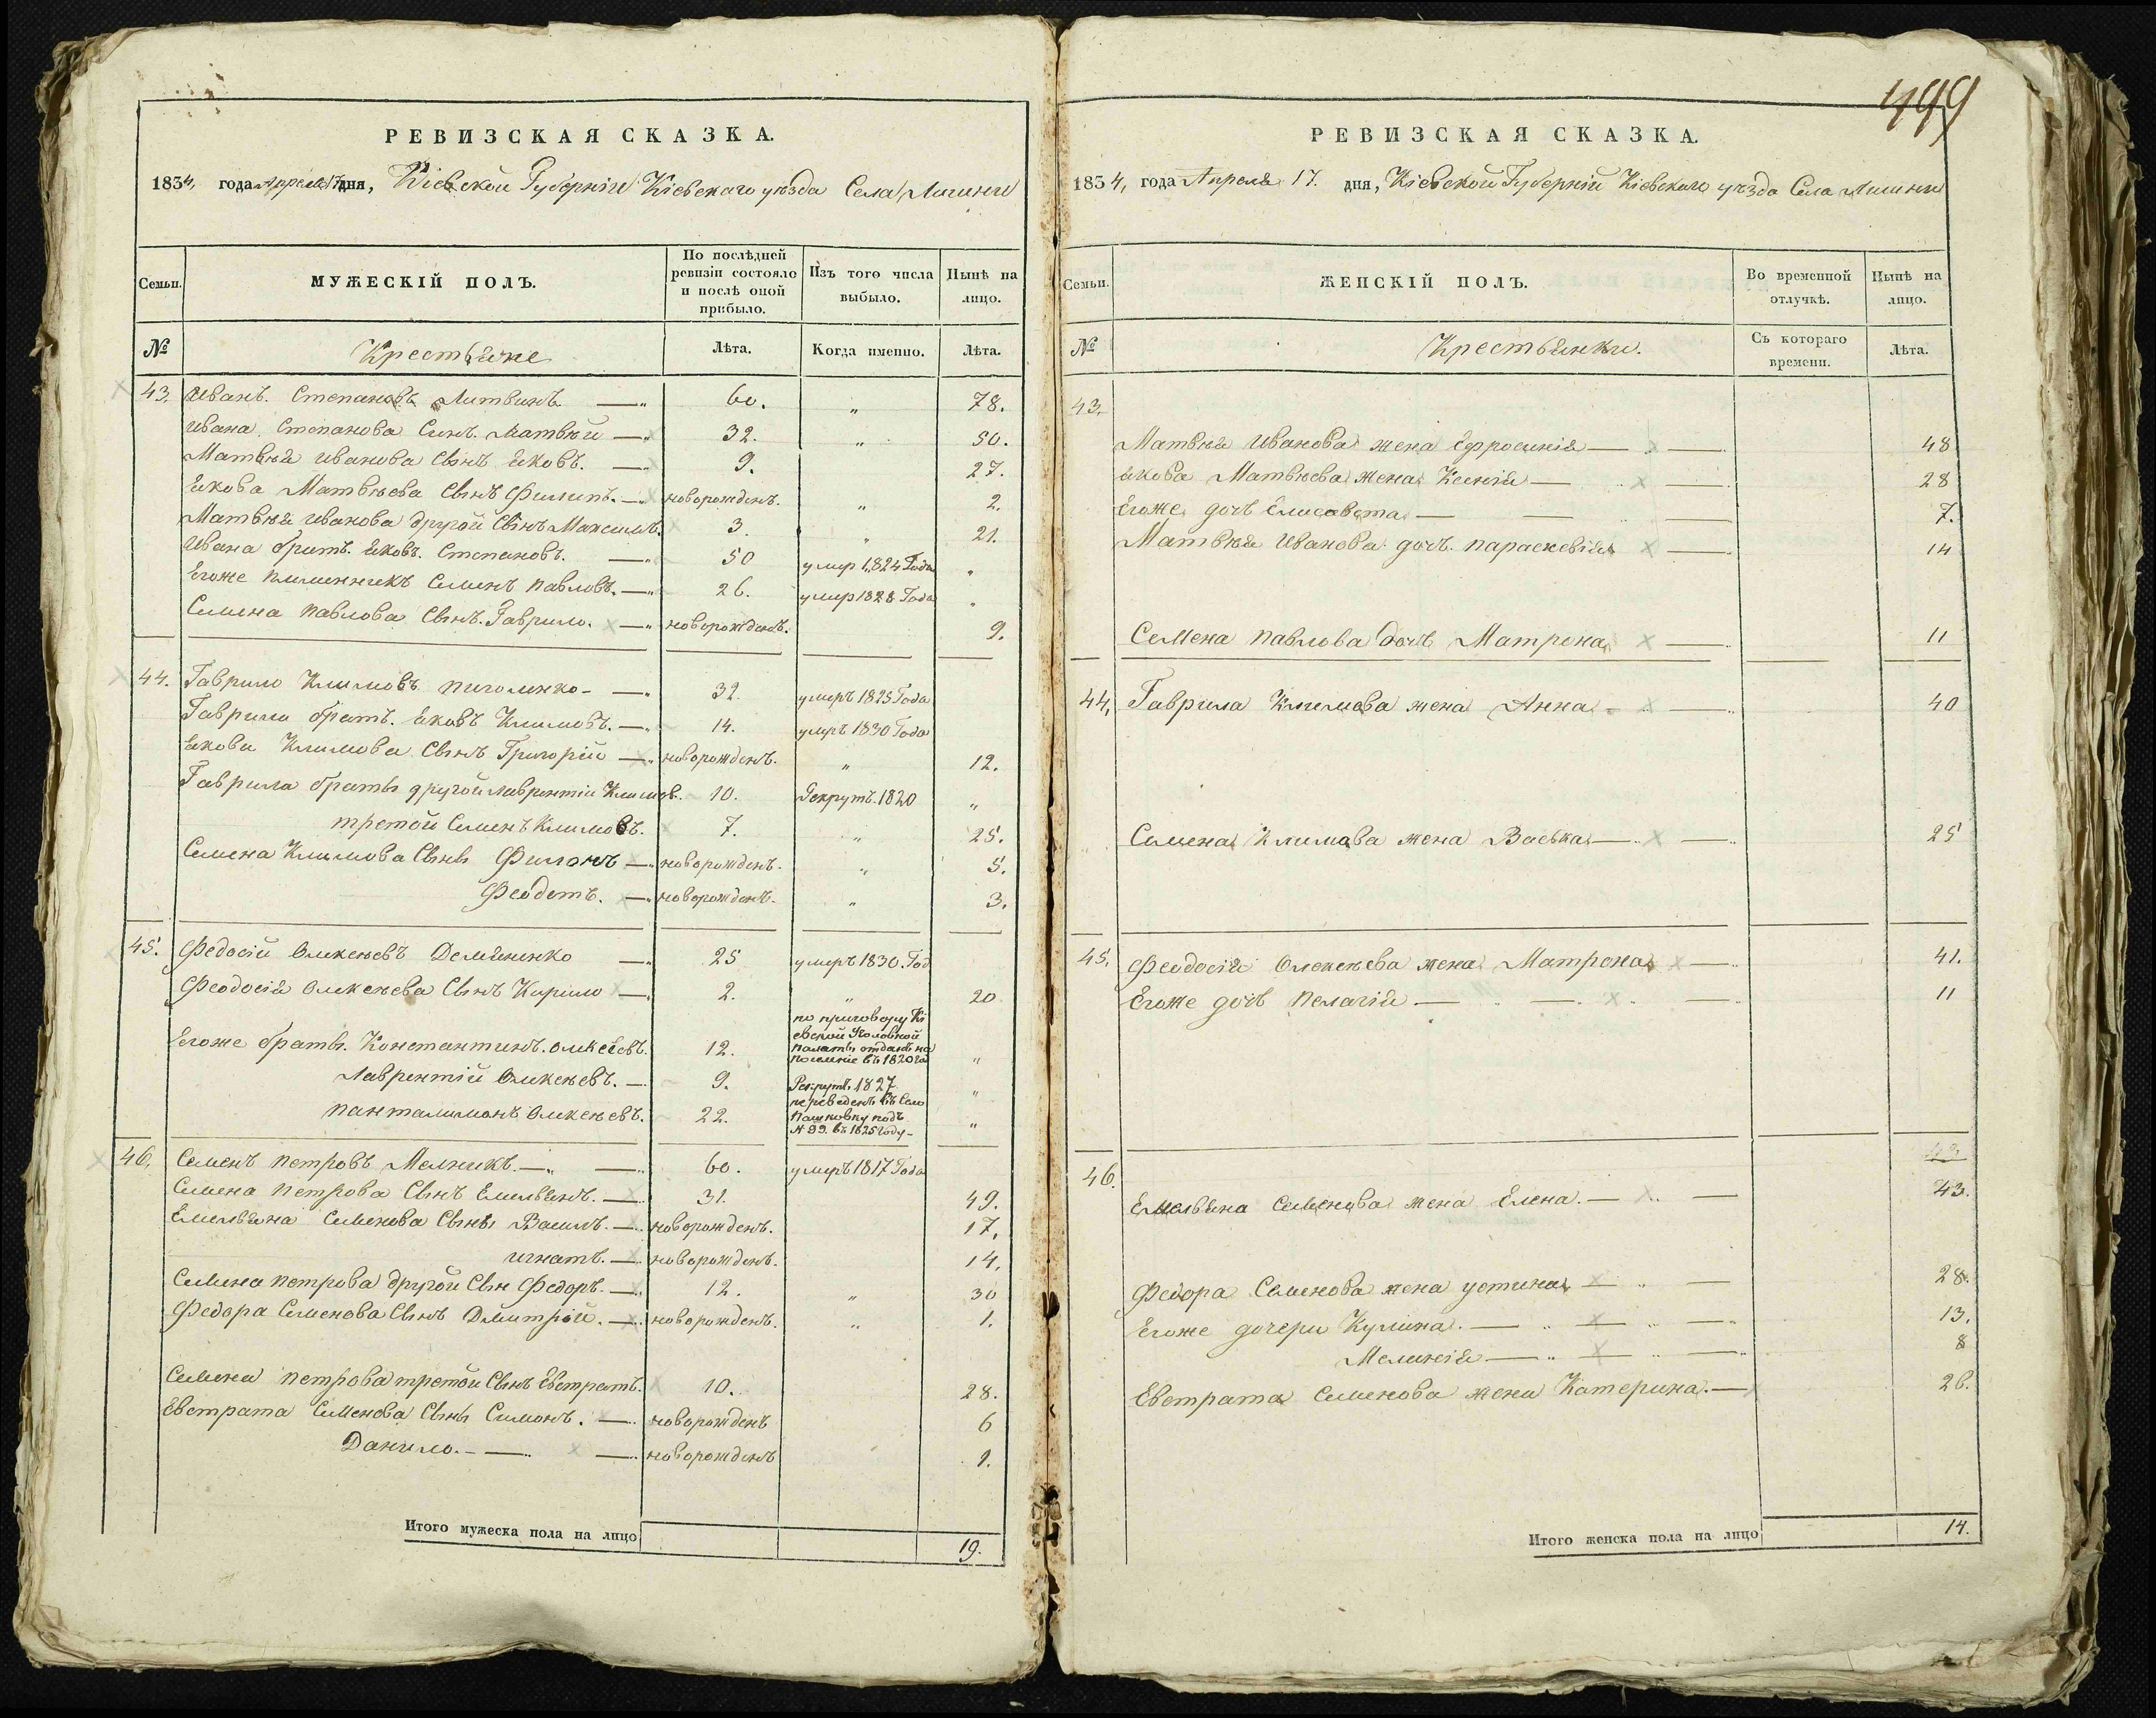 499
РЕВИЗСКАЯ СКАЗКА.
1834, года Апреля 17 дня, Кіевской Губерніи Кіевскаго уѣзда Села Личинки
Семьи.
МУЖЕСКІЙ ПОЛЪ.
По послѣдней ревизіи состояло и послѣ оной прибыло.
Изъ того числа выбыло.
Нынѣ на лицо.
№
Крестьяне
Лѣта.
Когда именно.
Лѣта.
43. Иванъ Степановъ Литвинъ — 60. „ 78.
Ивана Степанова Сынъ Матвѣй — 32. „ 50.
Матвѣя Иванова Сынъ Яковъ. — 9. 27.
Якова Матвѣева Сынъ Филипъ. — новорожденъ. „ 2.
Матвѣя Иванова другой Сынъ Максимъ. 3. „ 21.
Ивана братъ Яковъ Степановъ. — 50 умер 1824 Года „
Егоже племенникъ Семенъ Павловъ. — 26. умер 1828 Года „
Семена Павлова Сынъ Гаврило. — новорожденъ. 9.
44. Гаврило Климовъ — 32. умеръ 1825 Года
Гаврила братъ Яковъ Климовъ. — 14. умеръ 1830 Года
Якова Климова Сынъ Григорій — новорожденъ. „ 12.
Гаврила браты другой Лаврентій Климов. 10. Рекрутъ 1820 „
третой Семенъ Климовъ. 7. „ 25.
Семена Климова Сыны Филонъ — новорожденъ. „ 5.
Феодотъ. — новорожденъ. „ 3.
45. Федосій Олексѣевъ Демяненко — 25 умеръ 1830. Год
Феодосія Олексѣева Сынъ Кирило — 2. „ 20
Егоже браты. Константинъ Олексѣевъ. 12. по приговору Кі
евской Уголовной
палаты отданъ на
поселеніе въ 1820 го „
Лаврентій Олексѣевъ. — 9. Рекрутъ 1827 „
Панталимонъ Олексѣевъ. 22. переведенъ въ Село
Пашковку подъ
№ 99. въ 1825 году - „
46. Семенъ Петровъ Мелникъ. — 60. умеръ 1817 Года
Семена Петрова Сынъ Емельянъ. — 31. 49.
Емельяна Семенова Сыны Василъ. — новорожденъ. 17.
Игнатъ. — новорожденъ. 14.
Семена Петрова другой Сын Федоръ. — 12. „ 30
Федора Семенова Сынъ Дмитрій. — новорожденъ. „ 1.
Семена Петрова третой Сынъ Евстратъ. 10. 28.
Евстрата Семенова Сыны Симонъ. — новорожденъ 6
Данило. — новорожденъ 1.
Итого мужеска пола на лицо 19.
РЕВИЗСКАЯ СКАЗКА.
1834, года Апреля 17. дня, Кіевской Губерніи Кіевскаго уѣзда Села Личинки
Семьи.
ЖЕНСКІЙ ПОЛЪ.
Во временной отлучкѣ.
Нынѣ на лицо.
№
Крестьянки.
Съ котораго времени.
Лѣта.
43.
Матвѣя Иванова жена Ефросинія — 48
Якова Матвѣева жена Ксенія — 28
Егоже дочь Елисавета — 7.
Матвѣя Иванова дочь Параскевія — 14
Семена Павлова дочь Матрона — 11
44, Гаврила Климова жена Анна — 40
Семена Климова жена Васька — 25
45. Феодосія Олексѣева жена Матрона — 41.
Егоже дочь Пелагія — 11
46. Емельяна Семенова жена Елена. — 43.
Федора Семенова жена Устина — 28.
Егоже дочери Кулина. — 13.
Меланія — 8
Евстрата Семенова жена Катерина. — 26.
Итого женска пола на лицо 14.